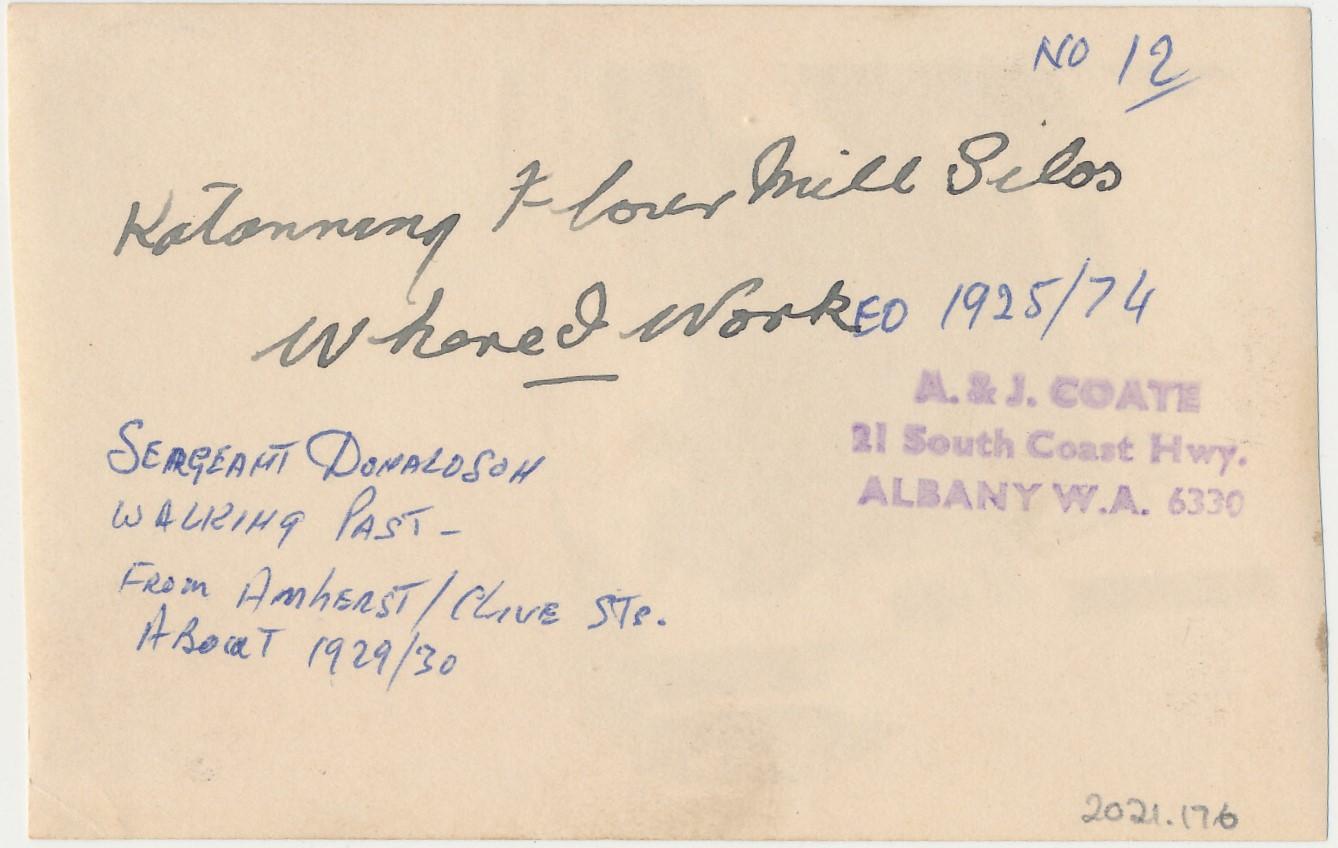 NO 12
Katanning Flour Mill Silos
Where I WorkED 1925/74
A. & J. COATE
21 South Coast Hwy.
ALBANY W.A. 6330
SERGEANT DONALDSON
WALKING PAST -
FROM AMHERST/CLIVE STS.
ABOUT 1929/30
2021.176